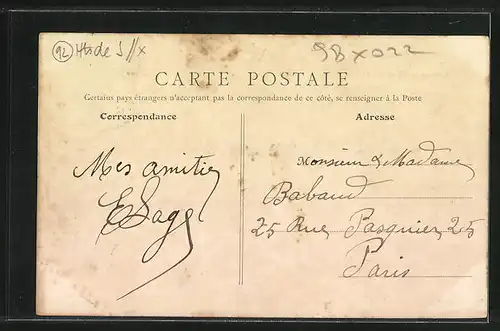 92 Hts de S //x
98 x 022
CARTE POSTALE
Certains pays étrangers n'acceptant pas la correspondance de ce côté, se renseigner à la Poste
Correspondance
Adresse
Mes amitiés
E Sage
Monsieur & Madame
Babaud
25 Rue Pasquier, 25
Paris